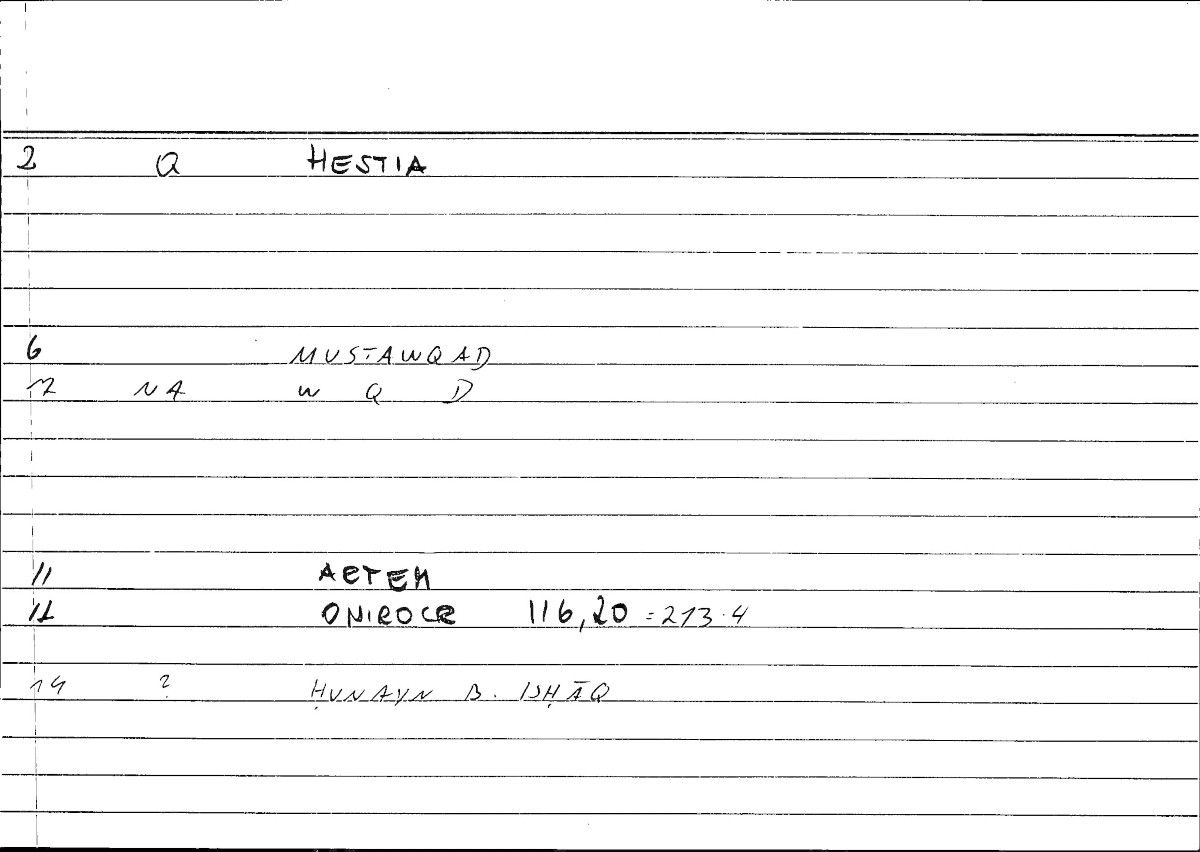 2 Q HESTIA
6 MUSTAWQAD
12 NA W Q D
11 ARTEM
12 ONIROCR 116,20 = 213.4
14 ? ḤUNAYN B. ISḤĀQ